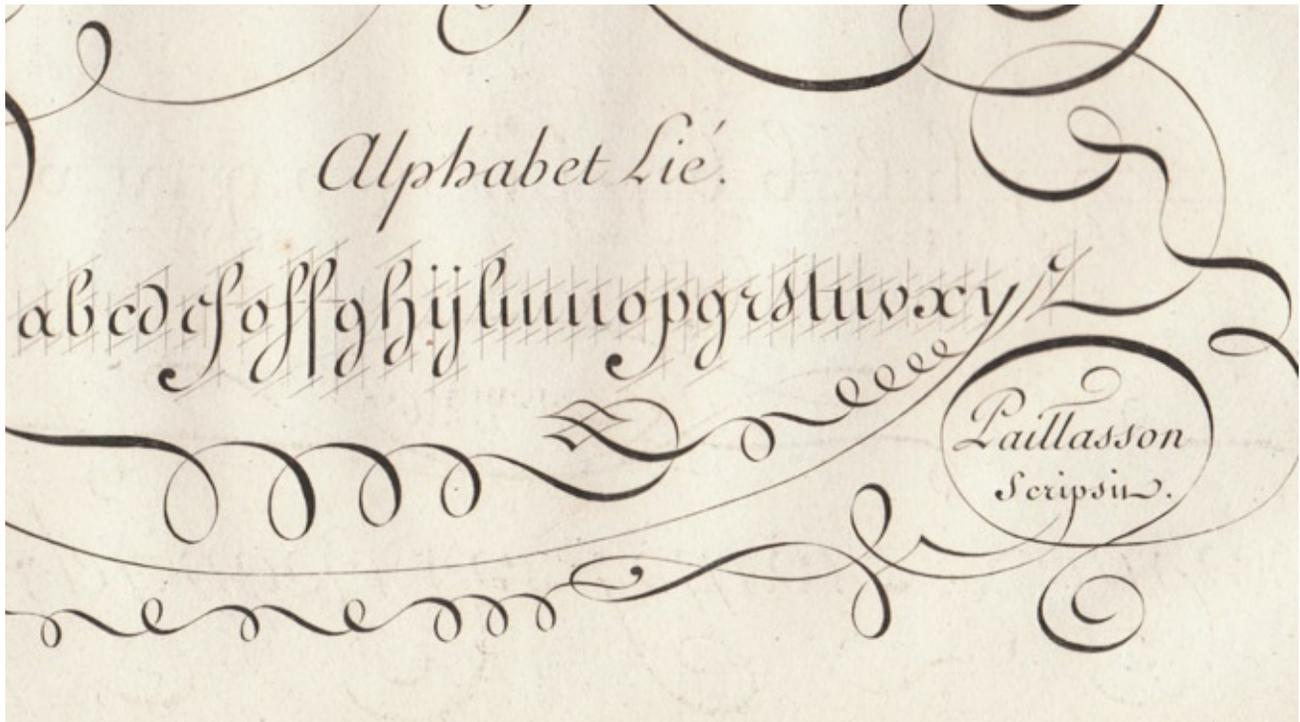 Alphabet Lié.
abcdefoffghijlmnopqrstuvxyz
Paillasson
Scripsit.